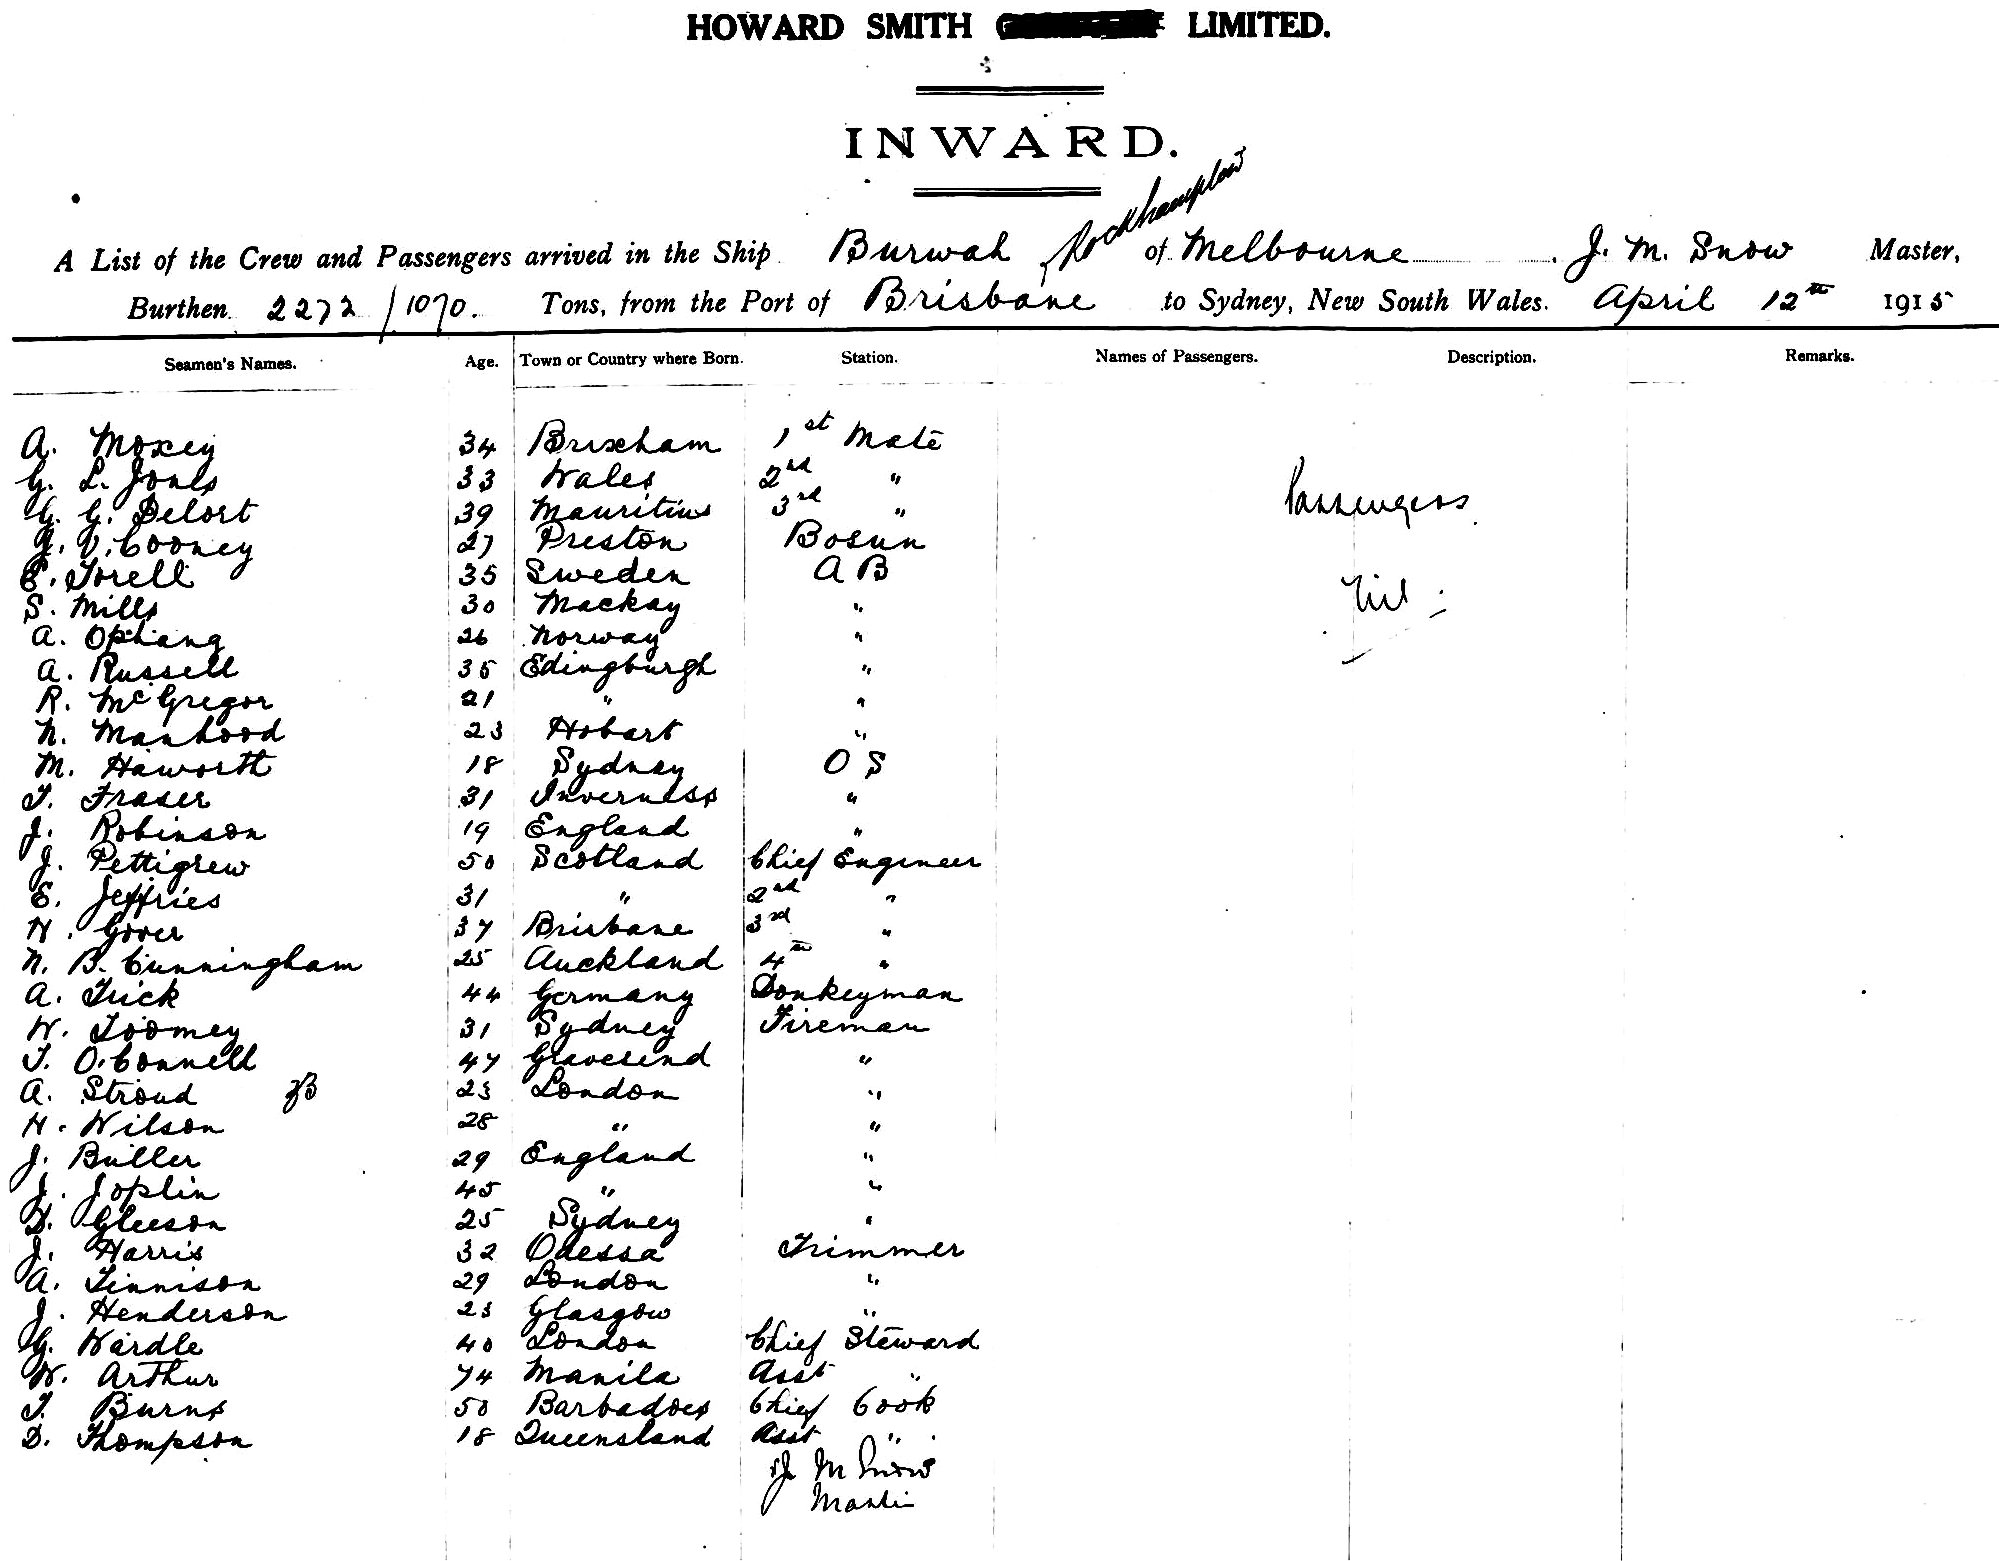 HOWARD SMITH LIMITED.
INWARD.
Rockhampton
A List of the Crew and Passengers arrived in the Ship Burwah of Melbourne J. M. Snow Master,
Burthen 2272/1070. Tons, from the Port of Brisbane to Sydney, New South Wales. April 12th 1915
Seamen's Names. Age. Town or Country where Born. Station. Names of Passengers. Description. Remarks.
A. Moxey 34 Brixham 1st Mate
G. L. Jones 33 Wales 2nd "
G. G. Delort 39 Mauritius 3rd "
Passengers
J. V. Cooney 27 Preston Bosun
E. Torell 35 Sweden A B
Nil
S. Mills 30 Mackay "
A. Ophang 26 Norway "
A. Russell 35 Edingburgh "
R. McGregor 21 " "
N. Manhood 23 Hobart "
M. Haworth 18 Sydney O S
T. Fraser 31 Inverness "
J. Robinson 19 England "
J. Pettigrew 50 Scotland Chief Engineer
E. Jeffries 31 " 2nd "
H. Gover 37 Brisbane 3rd "
N. B. Cunningham 25 Auckland 4th "
A. Frick 44 Germany Donkeyman
W. Toomey 31 Sydney Fireman
T. O'Connell 47 Gravesend "
A. Stroud 23 London "
H. Wilson 28 " "
J. Buller 29 England "
J. Joplin 45 " "
D. Gleeson 25 Sydney "
J. Harris 32 Odessa Trimmer
A. Tennison 29 London "
J. Henderson 23 Glasgow "
G. Wardle 40 London Chief Steward
W. Arthur 74 Manila Asst "
T. Burns 50 Barbadoes Chief Cook
D. Thompson 18 Queensland Asst "
J M Snow
Master